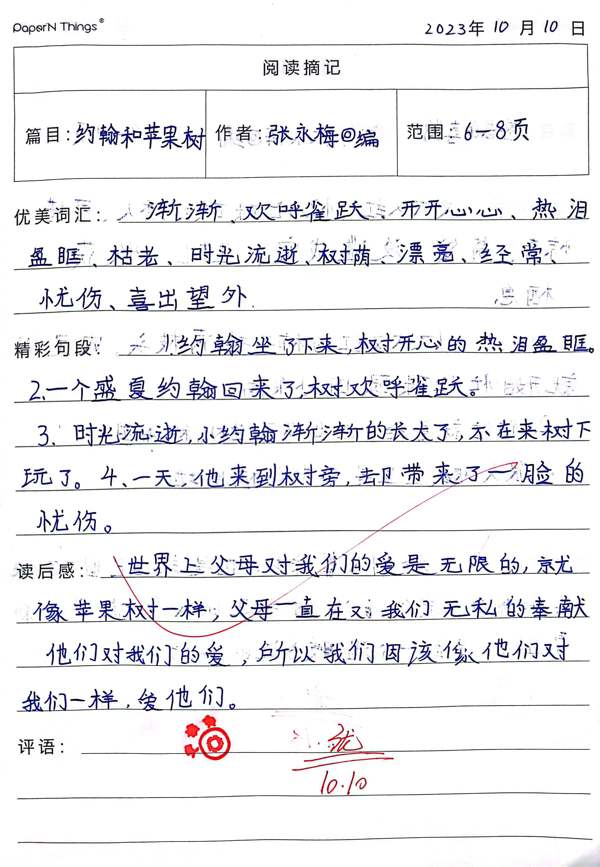 PaperN Things®
2023年10月10日
阅读摘记
篇目:约翰和苹果树 作者:张永梅@编 范围:6-8页
优美词汇: 渐渐、欢呼雀跃、开开心心、热泪
盈眶、枯老、时光流逝、树荫、漂亮、经常、
忧伤、喜出望外.
精彩句段: 小约翰坐了下来,树开心的热泪盈眶。
2.一个盛夏约翰回来了,树欢呼雀跃。
3.时光流逝,小约翰渐渐的长大了,不在来树下
玩了。4、一天,他来到树旁,却带来了一脸的
忧伤。
读后感: 世界上父母对我们的爱是无限的,就
像苹果树一样,父母一直在对我们无私的奉献
他们对我们的爱,所以我们因该像他们对
我们一样,爱他们。
评语: 优
10.10